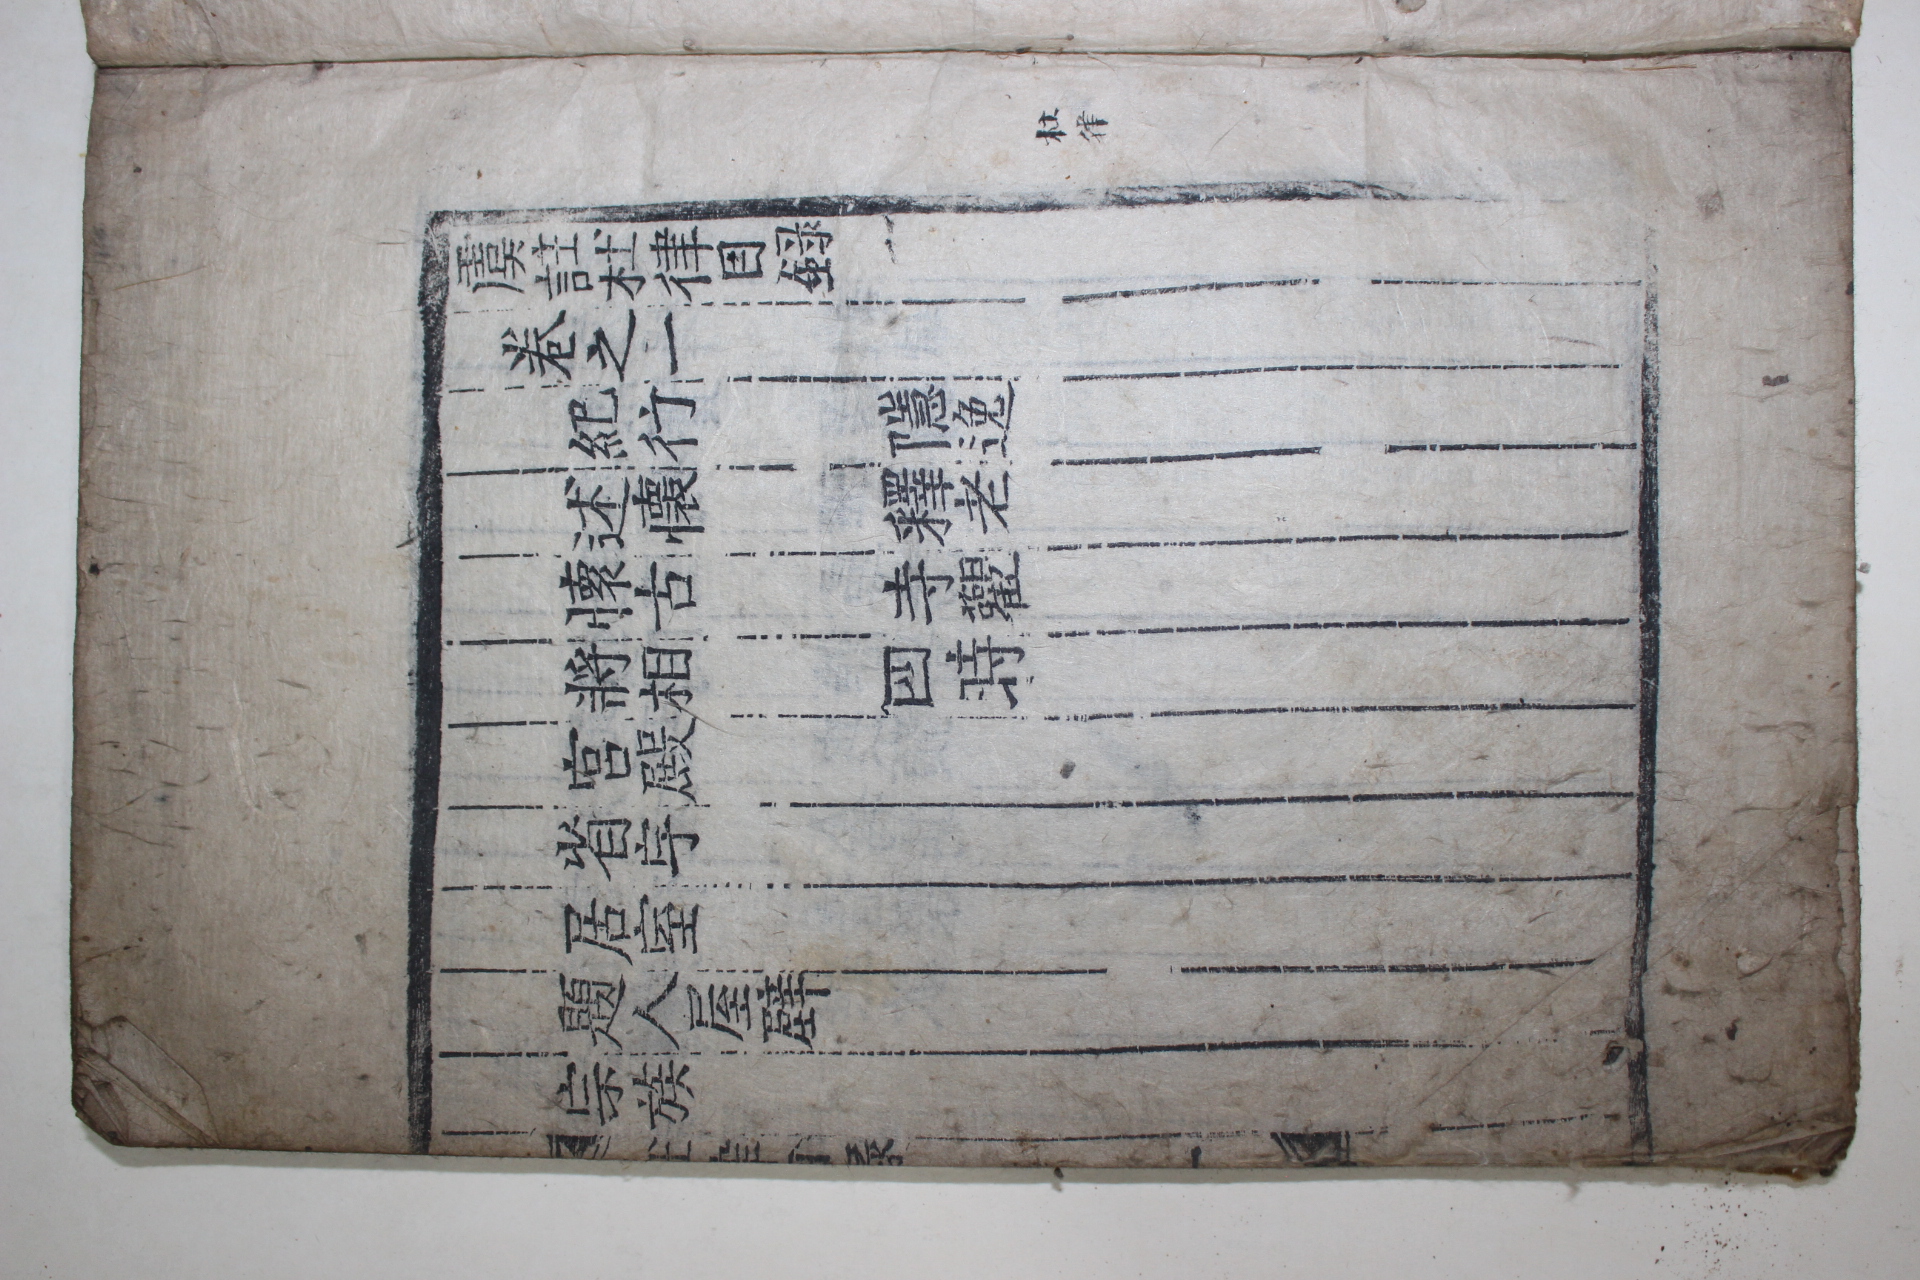 杜律
虞註杜律目錄
卷之一
紀行 隱逸
述懷 釋老
懷古 寺觀
將相 四時
宮殿
省宇
居室
題人屋壁
宗族